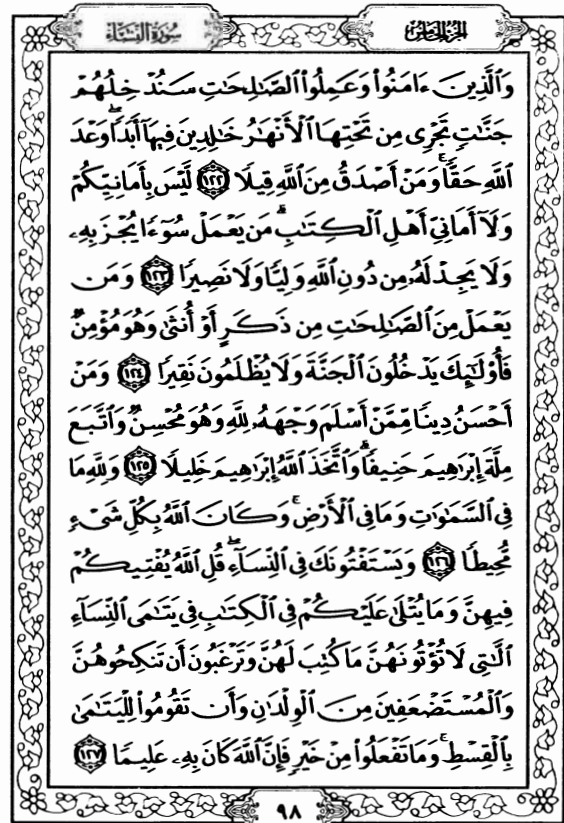 الجزء الخامس
سورة النساء
وَٱلَّذِينَ ءَامَنُوا۟ وَعَمِلُوا۟ ٱلصَّـٰلِحَـٰتِ سَنُدْخِلُهُمْ
جَنَّـٰتٍ تَجْرِى مِن تَحْتِهَا ٱلْأَنْهَـٰرُ خَـٰلِدِينَ فِيهَآ أَبَدًاۖ وَعْدَ
ٱللَّهِ حَقًّاۚ وَمَنْ أَصْدَقُ مِنَ ٱللَّهِ قِيلًا ١٢٢ لَّيْسَ بِأَمَانِيِّكُمْ
وَلَآ أَمَانِىِّ أَهْلِ ٱلْكِتَـٰبِۗ مَن يَعْمَلْ سُوٓءًا يُجْزَ بِهِۦ
وَلَا يَجِدْ لَهُۥ مِن دُونِ ٱللَّهِ وَلِيًّا وَلَا نَصِيرًا ١٢٣ وَمَن
يَعْمَلْ مِنَ ٱلصَّـٰلِحَـٰتِ مِن ذَكَرٍ أَوْ أُنثَىٰ وَهُوَ مُؤْمِنٌ
فَأُو۟لَـٰٓئِكَ يَدْخُلُونَ ٱلْجَنَّةَ وَلَا يُظْلَمُونَ نَقِيرًا ١٢٤ وَمَنْ
أَحْسَنُ دِينًا مِّمَّنْ أَسْلَمَ وَجْهَهُۥ لِلَّهِ وَهُوَ مُحْسِنٌ وَٱتَّبَعَ
مِلَّةَ إِبْرَٰهِيمَ حَنِيفًاۗ وَٱتَّخَذَ ٱللَّهُ إِبْرَٰهِيمَ خَلِيلًا ١٢٥ وَلِلَّهِ مَا
فِى ٱلسَّمَـٰوَٰتِ وَمَا فِى ٱلْأَرْضِۚ وَكَانَ ٱللَّهُ بِكُلِّ شَىْءٍ
مُّحِيطًا ١٢٦ وَيَسْتَفْتُونَكَ فِى ٱلنِّسَآءِۖ قُلِ ٱللَّهُ يُفْتِيكُمْ
فِيهِنَّ وَمَا يُتْلَىٰ عَلَيْكُمْ فِى ٱلْكِتَـٰبِ فِى يَتَـٰمَى ٱلنِّسَآءِ
ٱلَّـٰتِى لَا تُؤْتُونَهُنَّ مَا كُتِبَ لَهُنَّ وَتَرْغَبُونَ أَن تَنكِحُوهُنَّ
وَٱلْمُسْتَضْعَفِينَ مِنَ ٱلْوِلْدَٰنِ وَأَن تَقُومُوا۟ لِلْيَتَـٰمَىٰ
بِٱلْقِسْطِۚ وَمَا تَفْعَلُوا۟ مِنْ خَيْرٍ فَإِنَّ ٱللَّهَ كَانَ بِهِۦ عَلِيمًا ١٢٧
٩٨